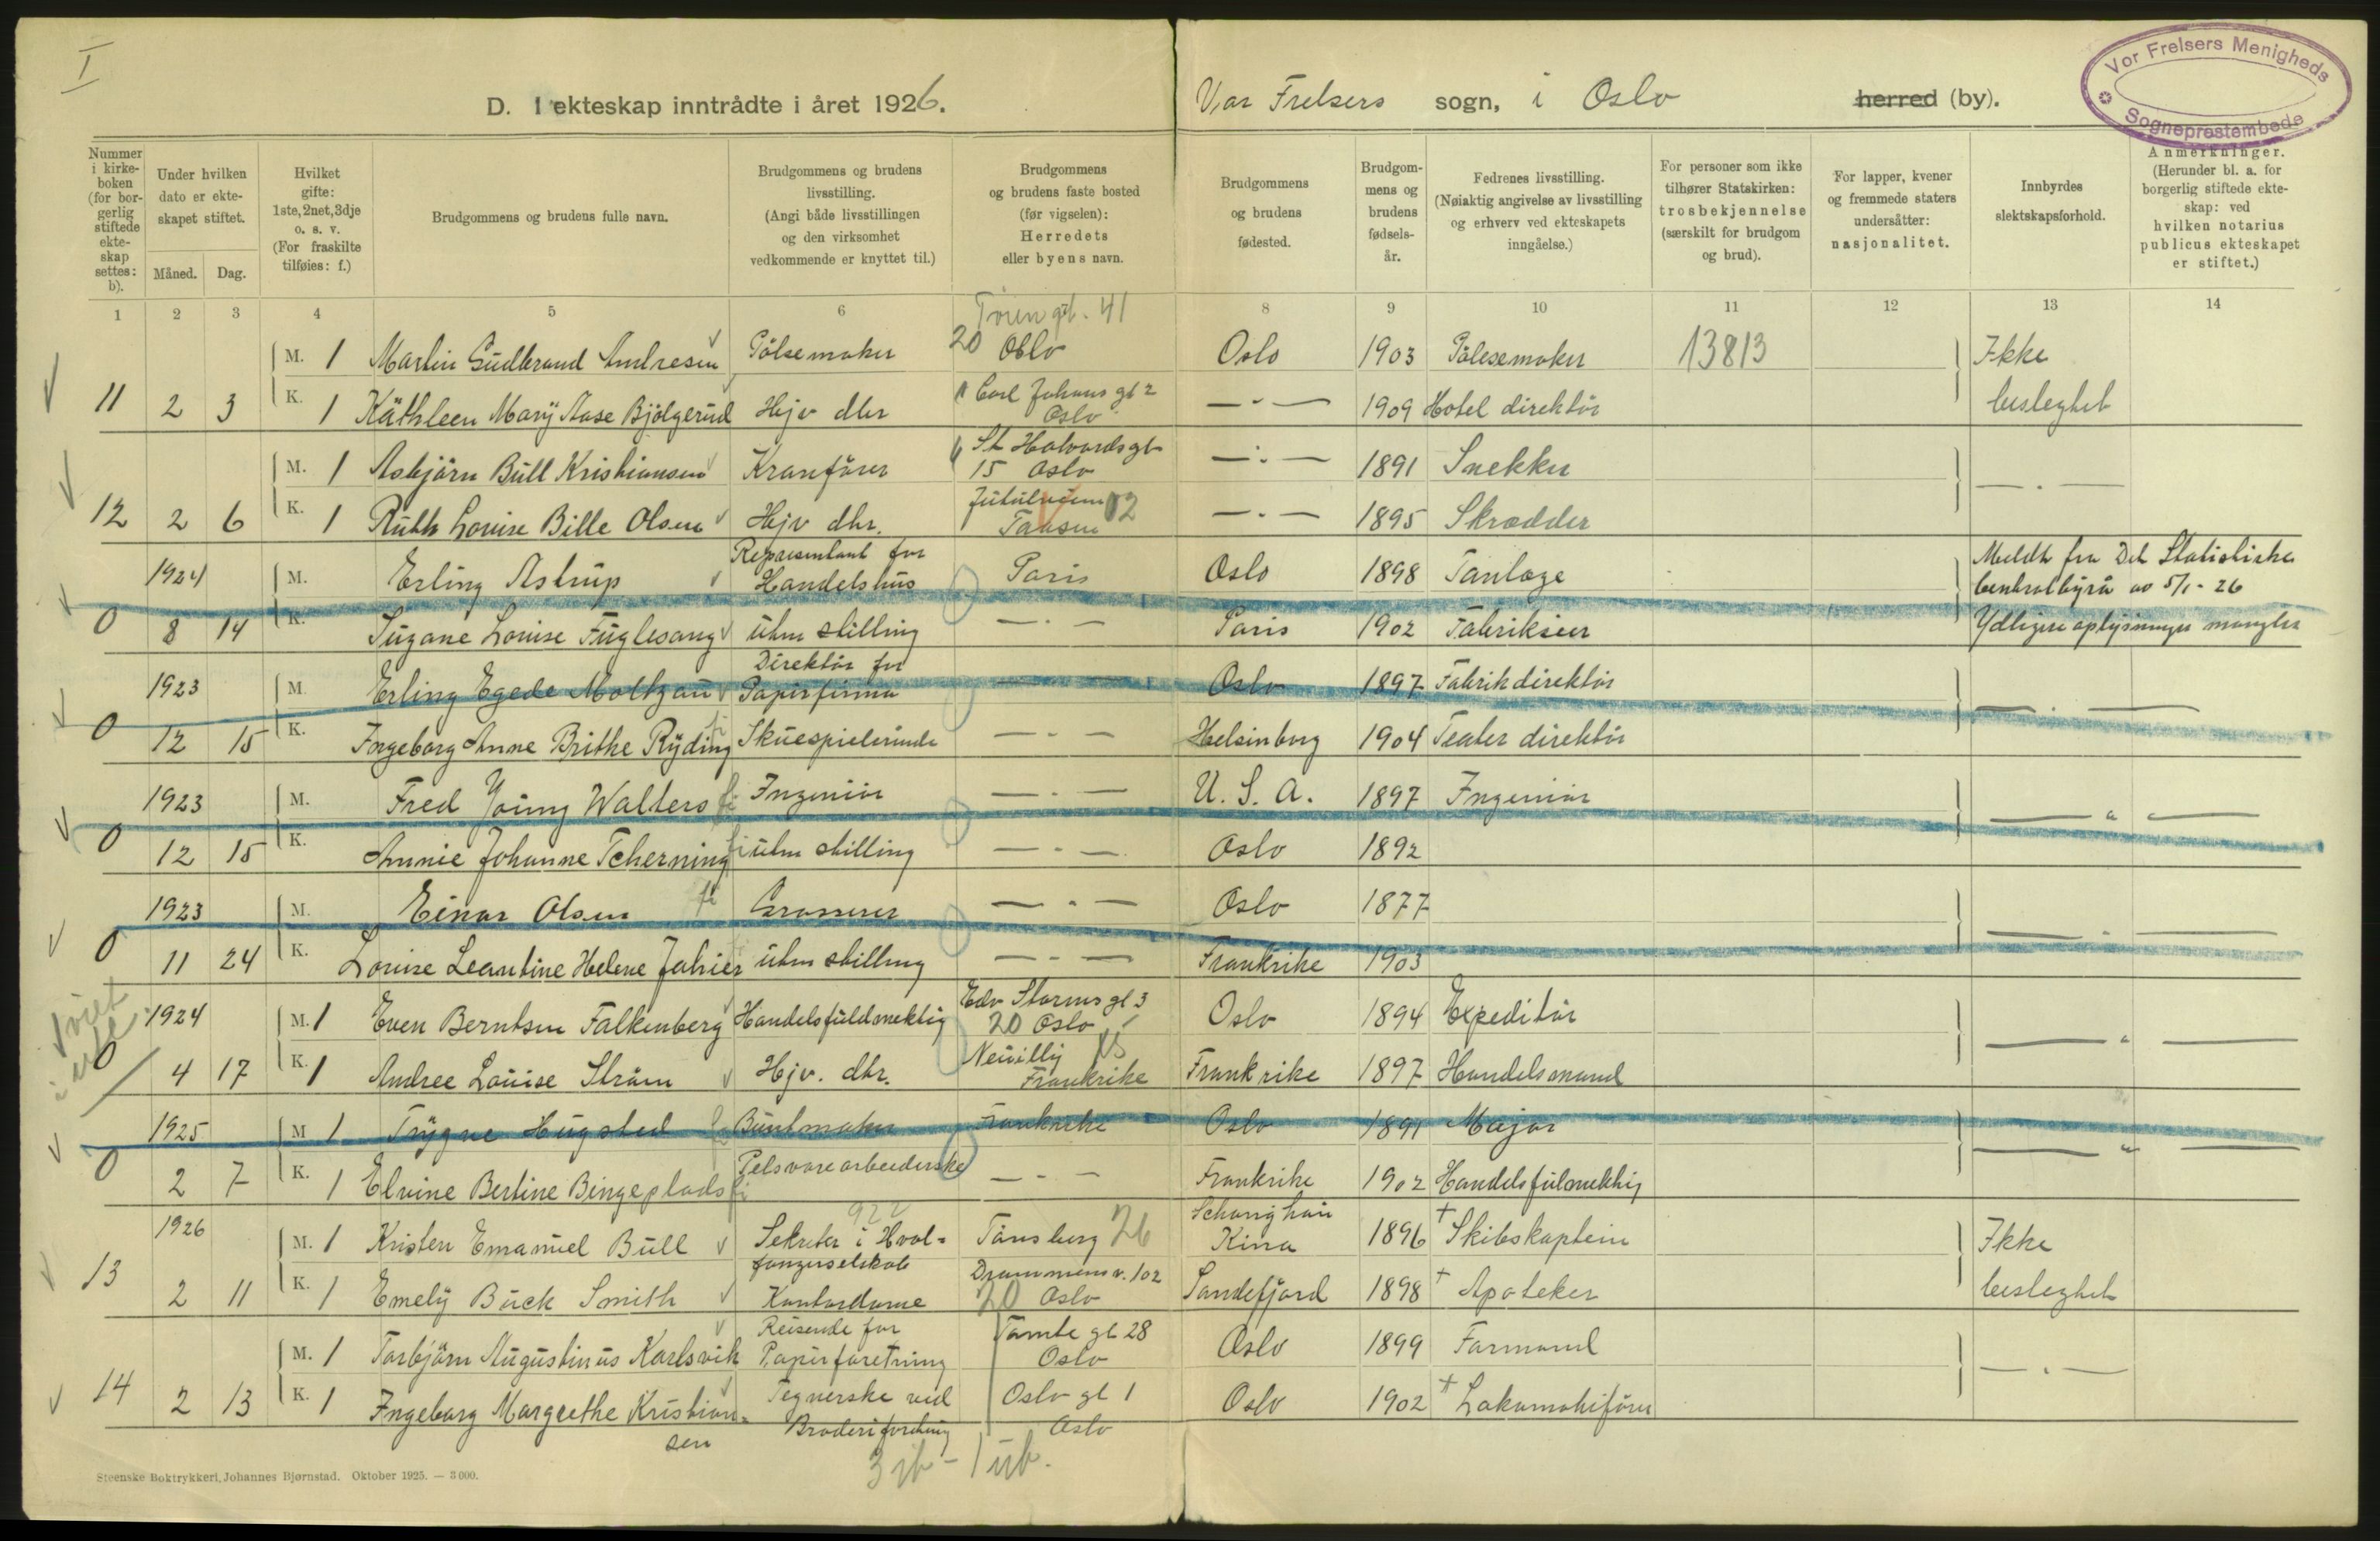 I
D. I ekteskap inntrådte i året 1926. Vår Frelsers sogn, i Oslo herred (by).
Vor Frelsers Menigheds Sogneprestembede
Nummer i kirkeboken (for borgerlig stiftede ekteskap settes: b).
Under hvilken dato er ekteskapet stiftet.
Måned. Dag.
Hvilket gifte: 1ste, 2net, 3dje o. s. v. (For fraskilte tilføies: f.)
Brudgommens og brudens fulle navn.
Brudgommens og brudens livsstilling. (Angi både livsstillingen og den virksomhet vedkommende er knyttet til.)
Brudgommens og brudens faste bosted (før vigselen): Herredets eller byens navn.
Brudgommens og brudens fødested.
Brudgommens og brudens fødselsår.
Fedrenes livsstilling. (Nøiaktig angivelse av livsstilling og erhverv ved ekteskapets inngåelse.)
For personer som ikke tilhører Statskirken: trosbekjennelse (særskilt for brudgom og brud).
For lapper, kvener og fremmede staters undersåtter: nasjonalitet.
Innbyrdes slektskapsforhold.
Anmerkninger. (Herunder bl. a. for borgerlig stiftede ekteskap: ved hvilken notarius publicus ekteskapet er stiftet.)
1 2 3 4 5 6 8 9 10 11 12 13 14
M. 1 Martin Gudbrand Andresen Pölsemaker 20 Oslo Oslo 1903 Pölsemaker 13813 Ikke
11 2 3 K. 1 Käthleen Mary Aase Bjölgerud Hjv dtr Carl Johans gt 2 Oslo — " — 1909 Hotel direktör beslegtet
M. 1 Asbjörn Bull Kristiansen Kranförer St Halvardsgt 15 Oslo — " — 1891 Snekker
12 2 6 K. 1 Ruth Louise Bille Olsen Hjv dtr. 02 — " — 1895 Skrædder — " —
1924 M. Erling Astrup Representant for Handelshus Paris Oslo 1898 Tanlæge Meldt fra Det Statistiske Centralbyrå av 5/1-26
0 8 14 K. Suzane Louise Fuglesang uten stilling — " — Paris 1902 Fabrikeier Ydligere oplysninger mangler
1923 M. Erling Egede Moltzau Direktör for Papirfirma — " — Oslo 1897 Fabrikdirektör
0 12 15 K. Ingeborg Anne Brithe Ryding Skuespielerinde — " — Helsinborg 1904 Teater direktör — " —
1923 M. Fred Young Walters Ingeniör — " — U. S. A. 1897 Ingeniör
0 12 15 K. Annie Johanne Tcherning uten stilling — " — Oslo 1892 — " —
1923 M. Einar Olsen Grosserer — " — Oslo 1877
0 11 24 K. Louise Leantine Helene Jahier uten stilling — " — Frankrike 1903 — " —
1924 M. 1 Even Berntsen Falkenberg Handelsfuldmektig Edv Storms gt 3 20 Oslo Oslo 1894 Expeditör
0 4 17 K. 1 Andree Louise Ström Hjv. dtr. Neuilly Frankrike Frankrike 1897 Handelsmand — " —
1925 M 1 Trygve Hugsted Buntmaker Frankrike Oslo 1891 Major
0 2 7 K. 1 Elvine Bertine Bingeplads Pelsvarearbeiderske — " — Frankrike 1902 Handelsfulmektig — " —
1926 M. 1 Kristen Emanuel Bull Sekretær i Hvalfangerselskab Tönsberg 26 Schanghai Kina 1896 + Skibskaptein Ikke
13 2 11 K. 1 Emely Buck Smith Kontordame Drammensv. 102 20 Oslo Sandefjord 1898 + Apoteker beslegtet
M. 1 Torbjörn Augustinus Karlsvik Reisende for Papirforetning Tomte gt 28 Oslo Oslo 1899 Formand
14 2 13 K. 1 Ingeborg Margrethe Kristiansen Tegnerske ved Broderiforetning Oslo gt 1 Oslo Oslo 1902 + Lokomotivförer — " —
Steenske Boktrykkeri, Johannes Bjørnstad. Oktober 1925. — 3 000.